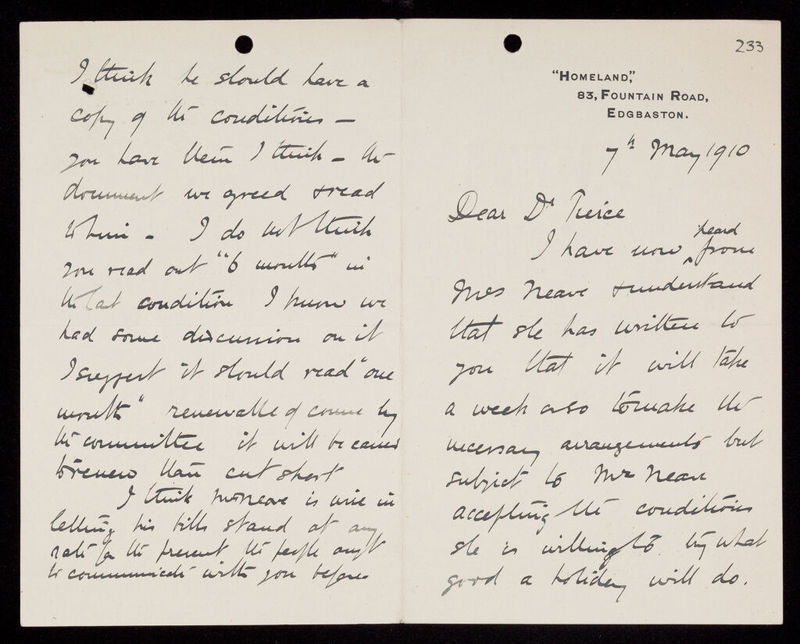 233
"HOMELAND",
83, FOUNTAIN ROAD,
EDGBASTON.
7th May 1910
Dear Dr Pierce
I have now heard from
Mrs Neave & understand
that she has written to
you that it will take
a week or so to make the
necessary arrangements but
subject to Mr Neave
accepting the conditions
she is willing to try what
good a holiday will do.
I think he should have a
copy of the conditions —
you have them I think – the
document we agreed & read
to him – I do not think
you read out "6 months" in
the last condition I know we
had some discussion on it
I suggest it should read "one
month" renewable of course by
the committee it will be easier
to renew than cut short
I think Mr Neave is wise in
letting his bills stand at any
rate for the present the people ought
to communicate with you before